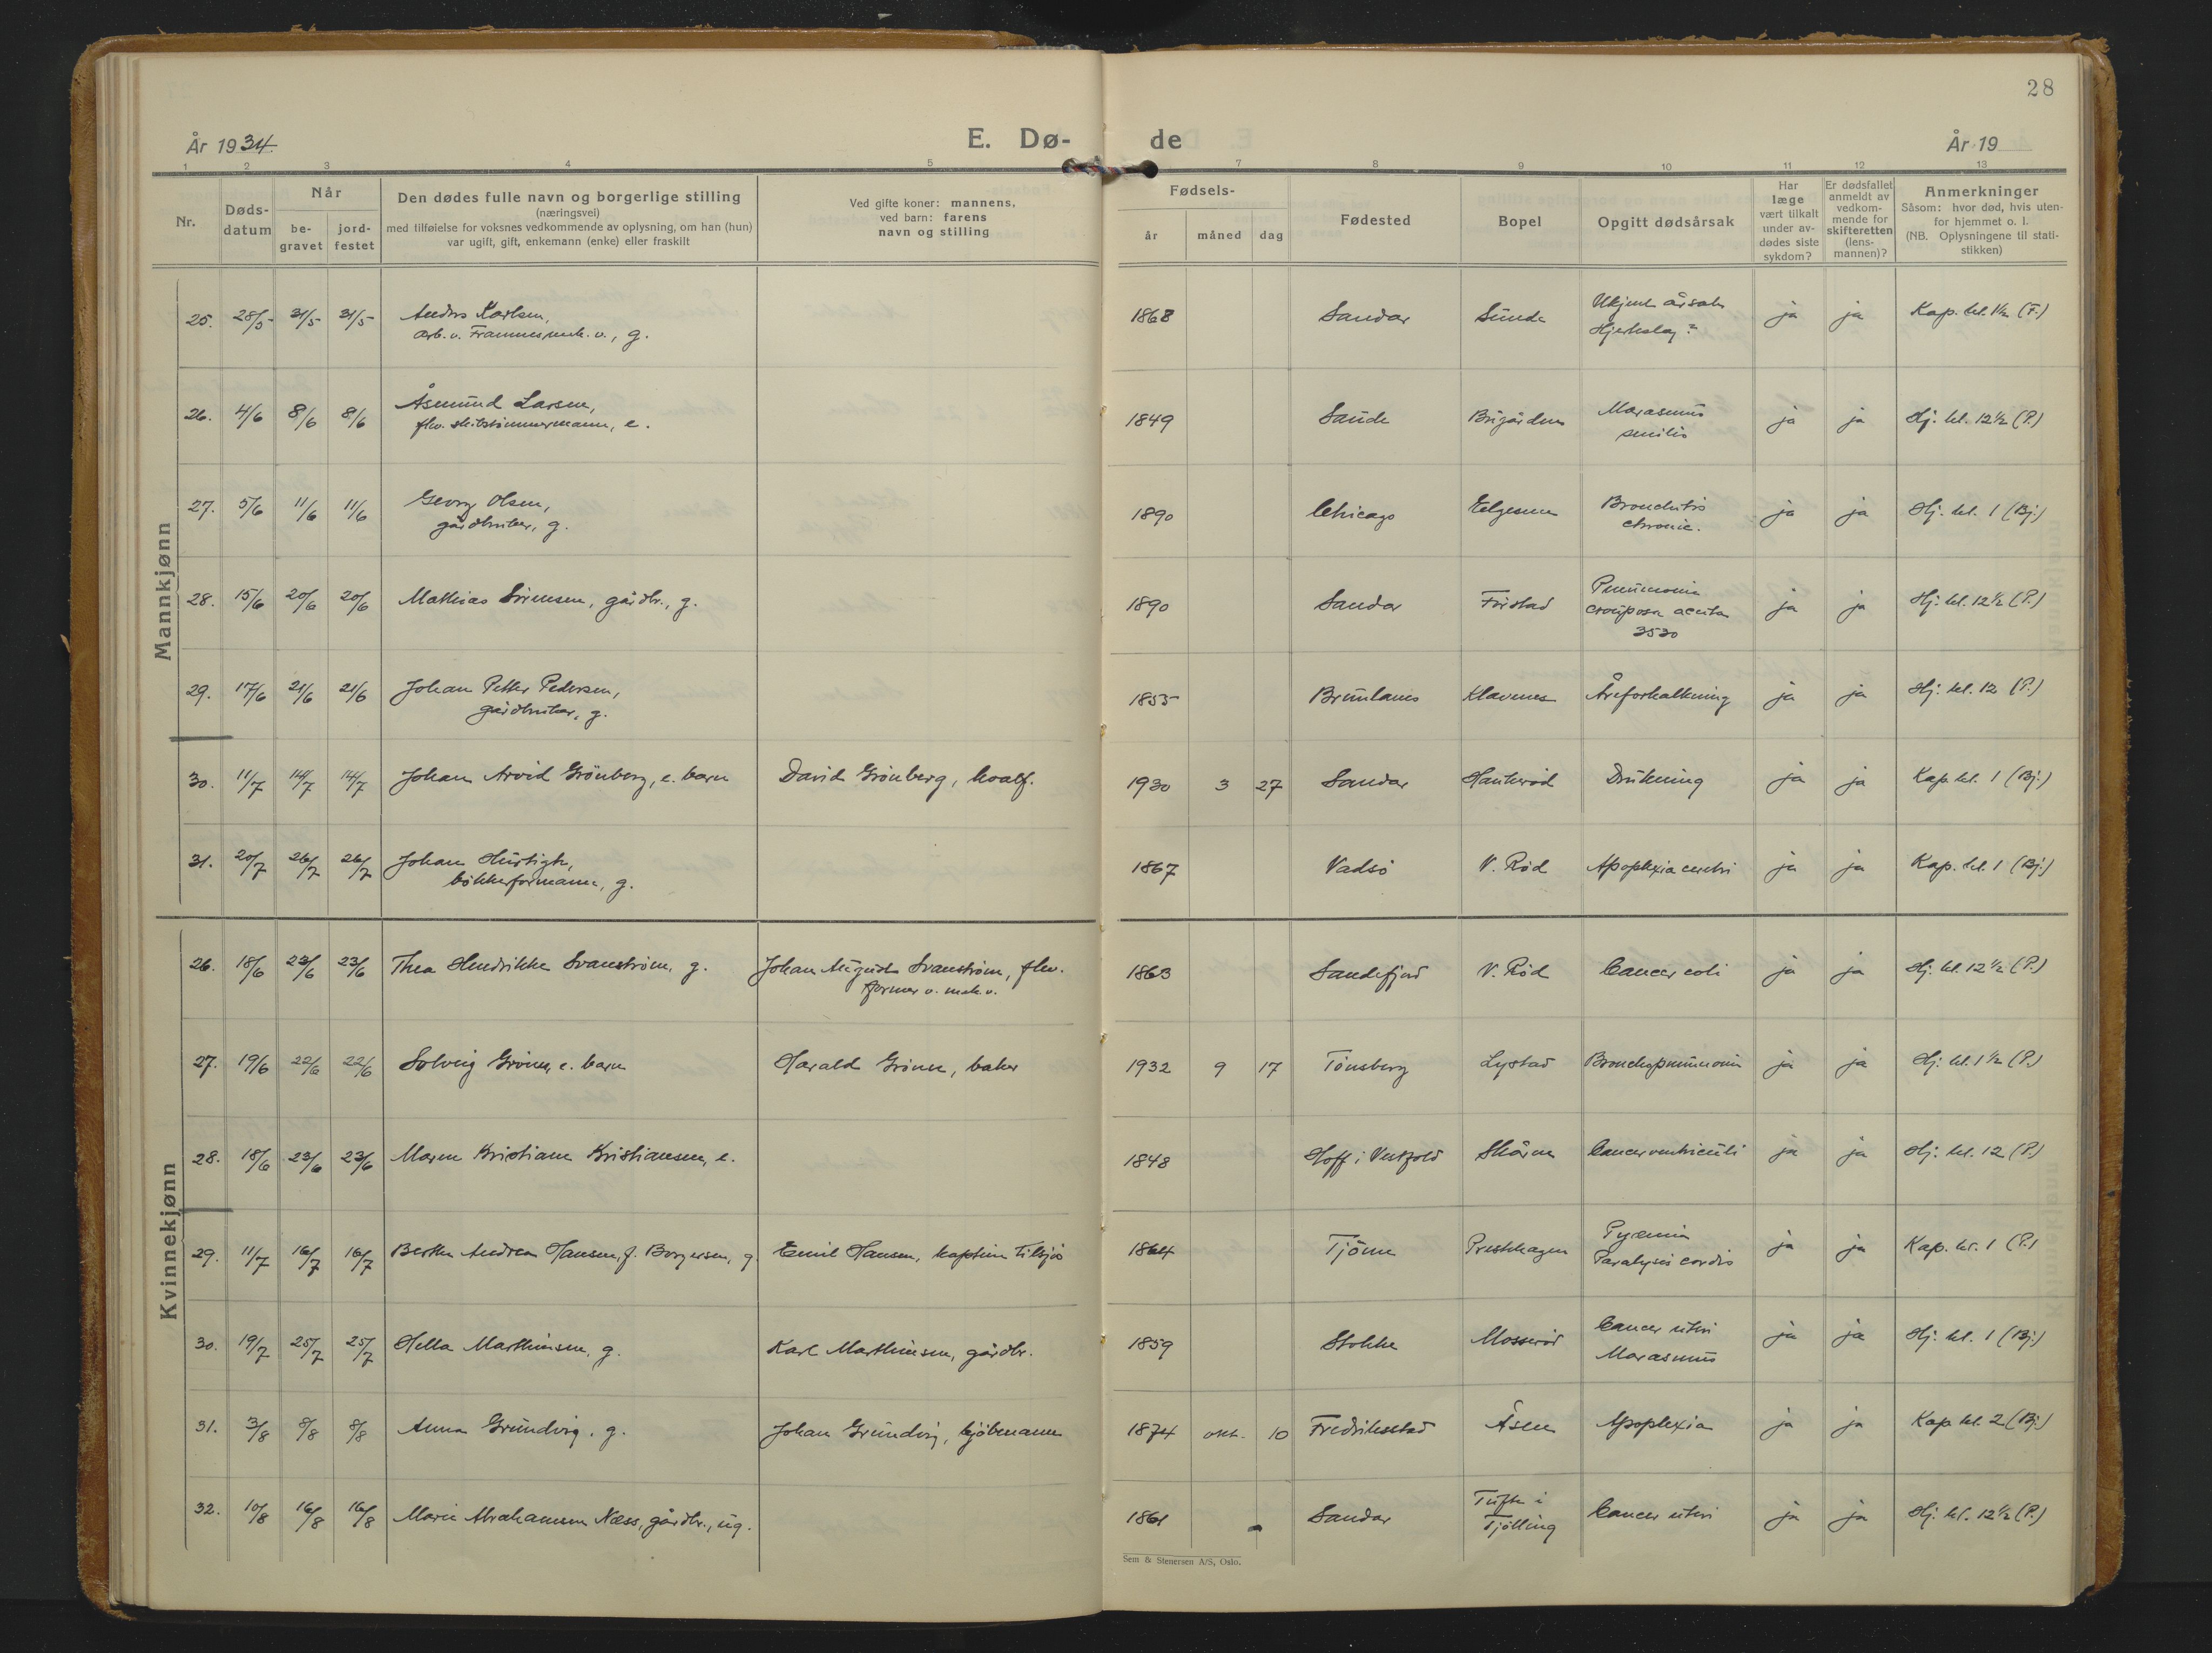 28
År 1934.
E. Dø-
de
År 19
1 2 3 4 5 7 8 9 10 11 12 13
Nr.
Døds-
datum
Når
be-
gravet
jord-
festet
Den dødes fulle navn og borgerlige stilling
(næringsvei)
med tilføielse for voksnes vedkommende av oplysning, om han (hun)
var ugift, gift, enkemann (enke) eller fraskilt
Ved gifte koner: mannens,
ved barn: farens
navn og stilling
Fødsels-
år måned dag
Fødested
Bopel
Opgitt dødsårsak
Har
læge
vært tilkalt
under av-
dødes siste
sykdom?
Er dødsfallet
anmeldt av
vedkom-
mende for
skifteretten
(lens-
mannen)?
Anmerkninger
Såsom: hvor død, hvis uten-
for hjemmet o. l.
(NB. Oplysningene til stati-
stikken)
Mannkjønn
25. 28/5 31/5 31/5 Anders Karlsen, 1868 Sandar Sunde Ukjent årsak ja ja Kap. kl. 1½ (F.)
arb. v. Framnes mek. v., g. Hjerteslag?
26. 4/6 8/6 8/6 Åsmund Larsen, 1849 Sande Brigården Marasmus ja ja Hj. kl. 12½ (P.)
fhv. skibstømmermann, e. senilis
27. 5/6 11/6 11/6 Georg Olsen, 1890 Chicago Elgesem Bronchitis ja ja Hj. kl. 1 (Bj.)
gårdbruker, g. chronic.
28. 15/6 20/6 20/6 Mathias Sørensen, gårdbr., g. 1890 Sandar Forstad Pneumonia ja ja Hj. kl. 12½ (P.)
crouposa acuta
3530
29. 17/6 21/6 21/6 Johan Petter Pedersen, 1855 Brunlanes Klavenes Åreforkalkning ja ja Hj. kl. 12 (P.)
gårdbruker, g.
30. 11/7 14/7 14/7 Johan Arvid Grønberg, e. barn David Grønberg, hvalf. 1930 3 27 Sandar Haukerød Drukning ja ja Kap. kl. 1 (Bj.)
31. 20/7 26/7 26/7 Johan Hurtigh, 1867 Vadsø V. Rød Apoplexia cerebri ja ja Kap. kl. 1 (Bj.)
bøkkerformann, g.
Kvinnekjønn
26. 18/6 23/6 23/6 Thea Hendrikke Svanstrøm, g. Johan August Svanstrøm, fhv. 1863 Sandefjord V. Rød Cancer coli ja ja Hj. kl. 12½ (P.)
former v. mek. v.
27. 19/6 22/6 22/6 Solveig Grønn, e. barn Harald Grønn, baker 1932 9 17 Tønsberg Lystad Bronchopneumoni ja ja Hj. kl. 1½ (P.)
28. 18/6 23/6 23/6 Maren Kristiane Kristiansen, e. 1848 Hoff i Vestfold Skåren Cancer ventriculi ja ja Hj. kl. 12 (P.)
29. 11/7 16/7 16/7 Berthe Andrea Hansen, f. Borgersen, g. Emil Hansen, kaptein tilsjøs 1864 Tjøme Presthagen Pyæmia ja ja Kap. kl. 1 (P.)
Paralysis cordis
30. 19/7 25/7 25/7 Hella Marthinsen, g. Karl Marthinsen, gårdbr. 1859 Stokke Mosserød Cancer uteri ja ja Hj. kl. 1 (Bj.)
Marasmus
31. 3/8 8/8 8/8 Anna Grundvig, g. Johan Grundvig, kjøbmann 1874 okt. 10 Fredriksstad Åsen Apoplexia ja ja Kap kl. 2 (Bj.)
32. 10/8 16/8 16/8 Marie Abrahamsen Næss, gårdbr., ug. 1861 Sandar Tufte i Cancer uteri ja ja Hj. kl. 12½ (P.)
Tjølling
Sem & Stenersen A/S, Oslo.